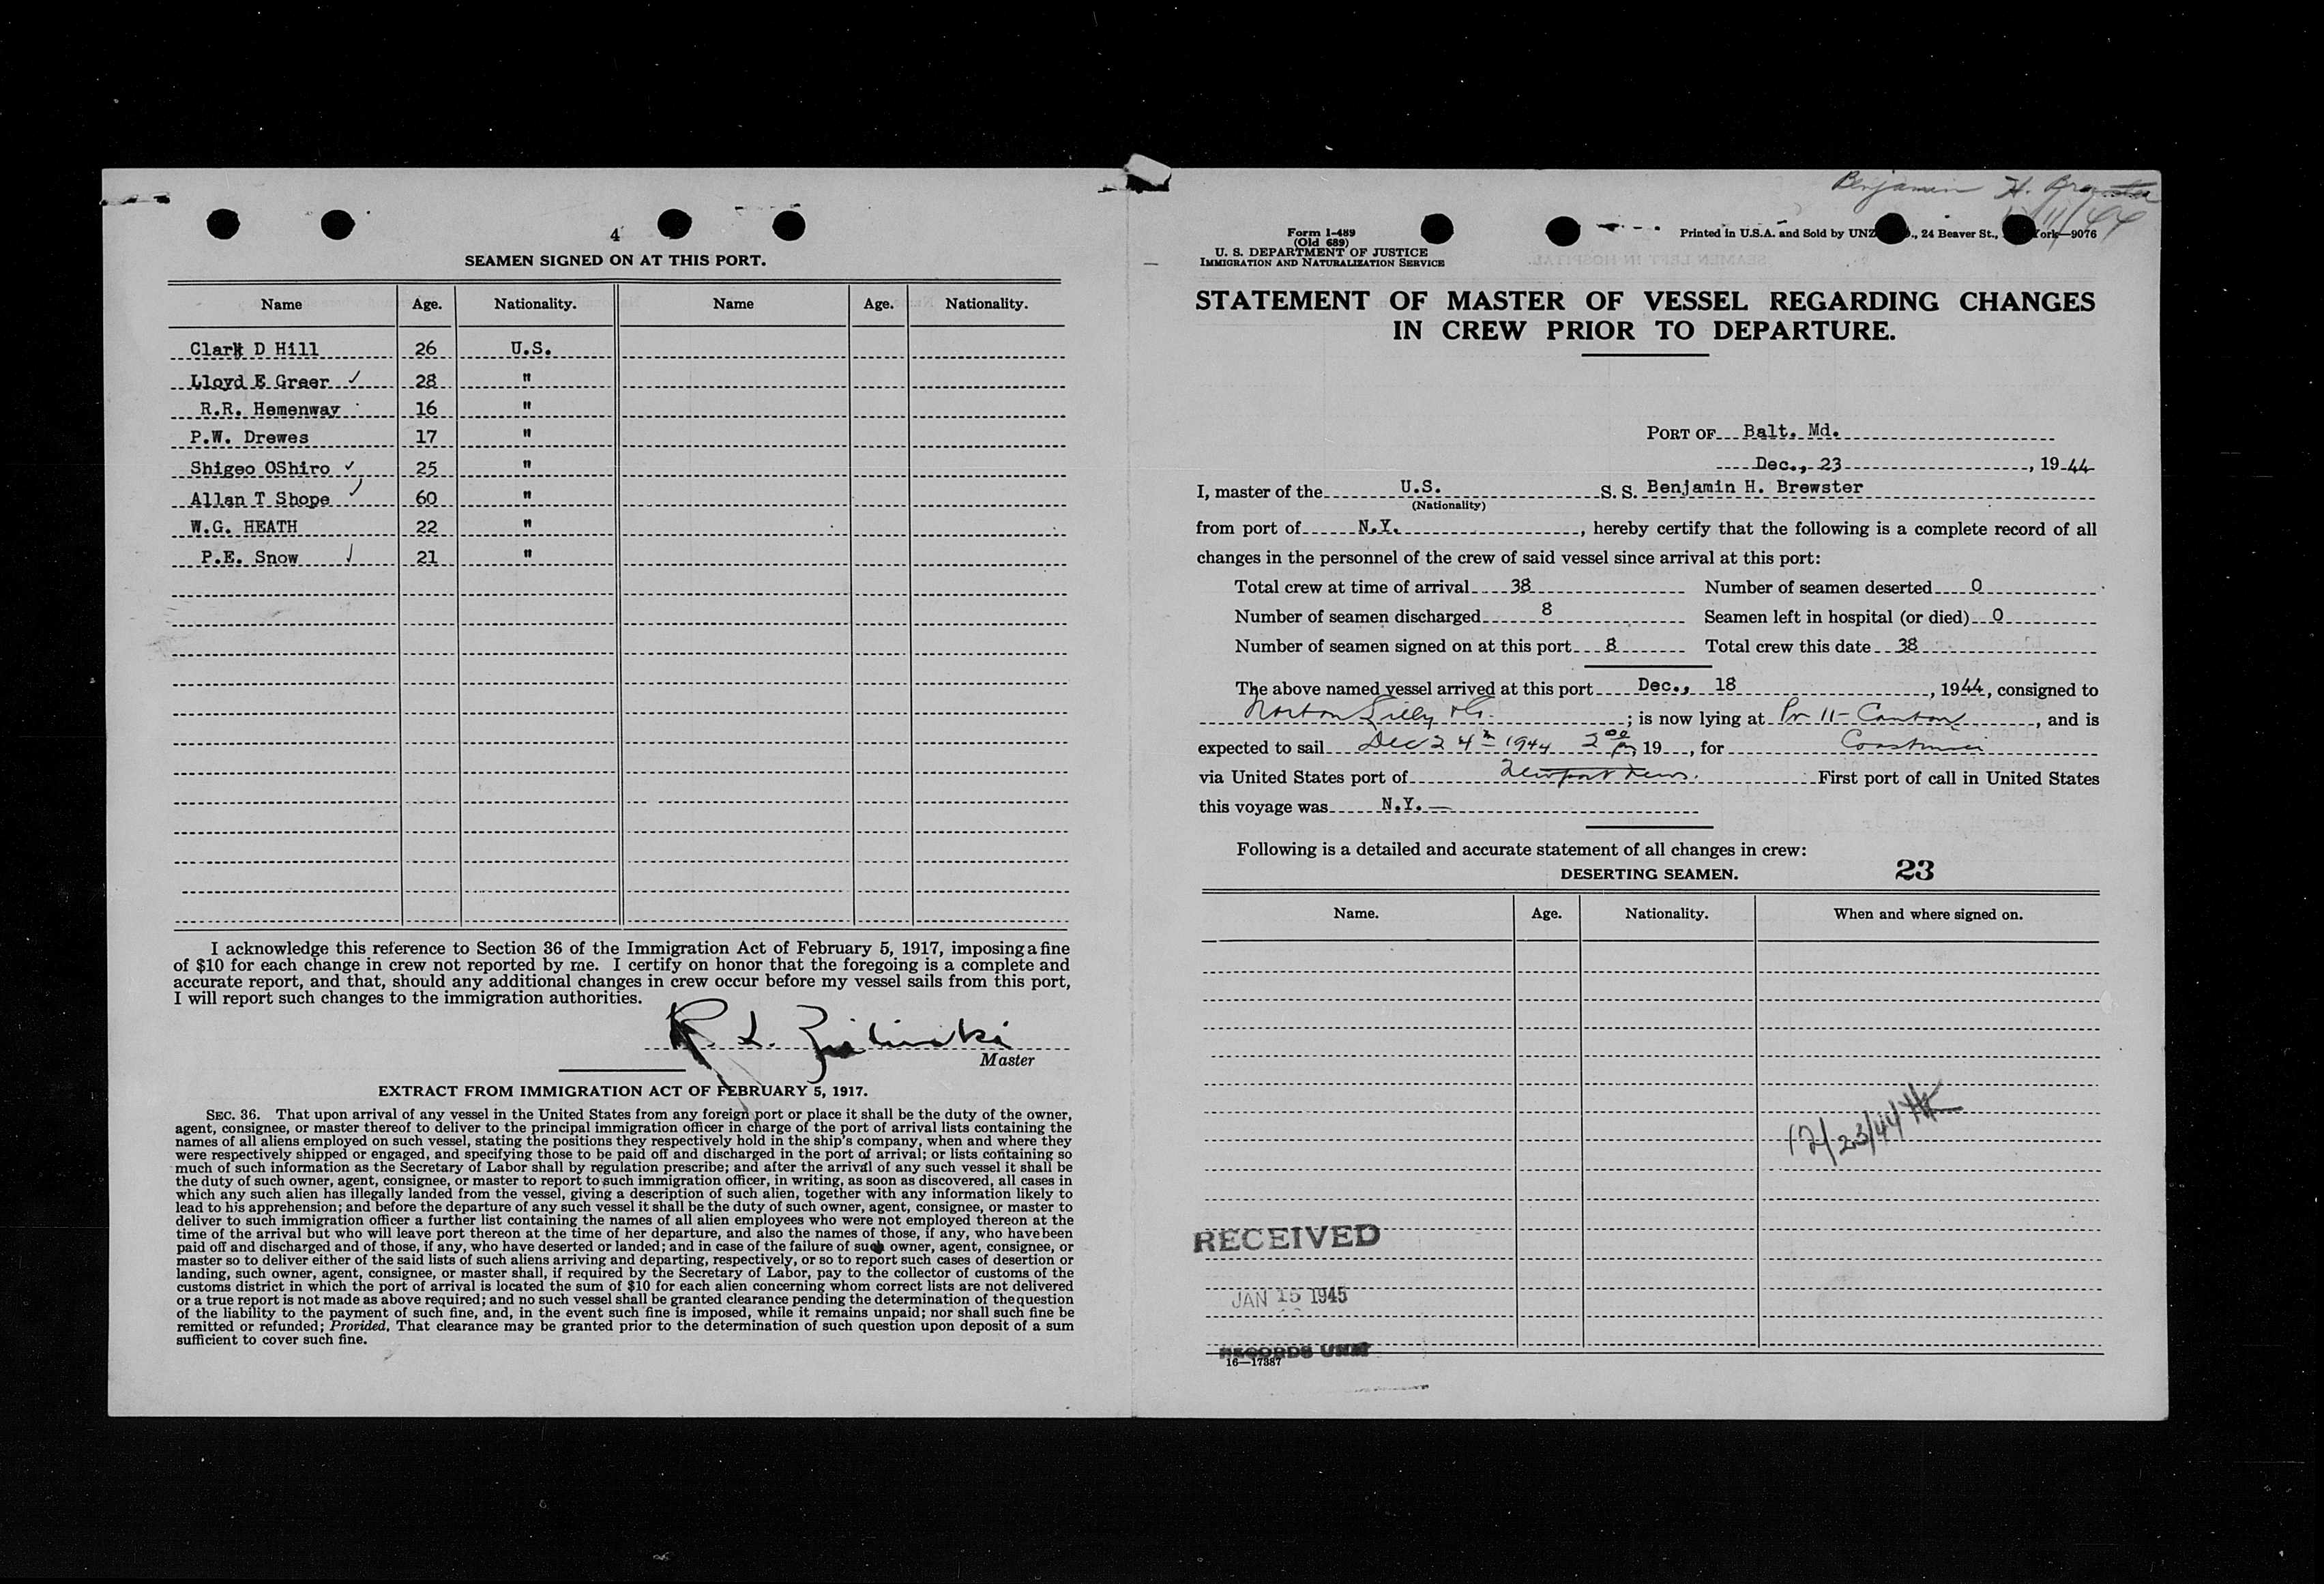 4
SEAMEN SIGNED ON AT THIS PORT.
Name Age. Nationality. Name Age. Nationality.
Clark D Hill 26 U.S.
Lloyd E Greer ✓ 28 "
R.R. Hemenway 16 "
P.W. Drewes 17 "
Shigeo OShiro ✓ 25 "
Allan T Shope ✓ 60 "
W.G. HEATH 22 "
P.E. Snow ✓ 21 "
I acknowledge this reference to Section 36 of the Immigration Act of February 5, 1917, imposing a fine
of $10 for each change in crew not reported by me. I certify on honor that the foregoing is a complete and
accurate report, and that, should any additional changes in crew occur before my vessel sails from this port,
I will report such changes to the immigration authorities.
R. L. Zielinski
Master
EXTRACT FROM IMMIGRATION ACT OF FEBRUARY 5, 1917.
SEC. 36. That upon arrival of any vessel in the United States from any foreign port or place it shall be the duty of the owner,
agent, consignee, or master thereof to deliver to the principal immigration officer in charge of the port of arrival lists containing the
names of all aliens employed on such vessel, stating the positions they respectively hold in the ship's company, when and where they
were respectively shipped or engaged, and specifying those to be paid off and discharged in the port of arrival; or lists containing so
much of such information as the Secretary of Labor shall by regulation prescribe; and after the arrival of any such vessel it shall be
the duty of such owner, agent, consignee, or master to report to such immigration officer, in writing, as soon as discovered, all cases in
which any such alien has illegally landed from the vessel, giving a description of such alien, together with any information likely to
lead to his apprehension; and before the departure of any such vessel it shall be the duty of such owner, agent, consignee, or master to
deliver to such immigration officer a further list containing the names of all alien employees who were not employed thereon at the
time of the arrival but who will leave port thereon at the time of her departure, and also the names of those, if any, who have been
paid off and discharged and of those, if any, who have deserted or landed; and in case of the failure of such owner, agent, consignee, or
master so to deliver either of the said lists of such aliens arriving and departing, respectively, or so to report such cases of desertion or
landing, such owner, agent, consignee, or master shall, if required by the Secretary of Labor, pay to the collector of customs of the
customs district in which the port of arrival is located the sum of $10 for each alien concerning whom correct lists are not delivered
or a true report is not made as above required; and no such vessel shall be granted clearance pending the determination of the question
of the liability to the payment of such fine, and, in the event such fine is imposed, while it remains unpaid; nor shall such fine be
remitted or refunded; Provided, That clearance may be granted prior to the determination of such question upon deposit of a sum
sufficient to cover such fine.
Benjamin H. Brewster
11/44
Form I-489
(Old 689)
U. S. DEPARTMENT OF JUSTICE
IMMIGRATION AND NATURALIZATION SERVICE
Printed in U.S.A. and Sold by UNZ ., 24 Beaver St., York—9076
STATEMENT OF MASTER OF VESSEL REGARDING CHANGES
IN CREW PRIOR TO DEPARTURE.
PORT OF Balt. Md.
Dec., 23, 1944
I, master of the U.S. S. S. Benjamin H. Brewster
(Nationality)
from port of N.Y., hereby certify that the following is a complete record of all
changes in the personnel of the crew of said vessel since arrival at this port:
Total crew at time of arrival 38 Number of seamen deserted 0
Number of seamen discharged 8 Seamen left in hospital (or died) 0
Number of seamen signed on at this port 8 Total crew this date 38
The above named vessel arrived at this port Dec., 18, 1944, consigned to
Norton Lilly & Co.; is now lying at Pr 11 - Canton, and is
expected to sail Dec 24th 1944 2 00 pm, 19 , for Coastwise
via United States port of Newport News. First port of call in United States
this voyage was N.Y. —
Following is a detailed and accurate statement of all changes in crew:
DESERTING SEAMEN. 23
Name. Age. Nationality. When and where signed on.
12/23/44
RECEIVED
JAN 15 1945
RECORDS UNIT
16—17387